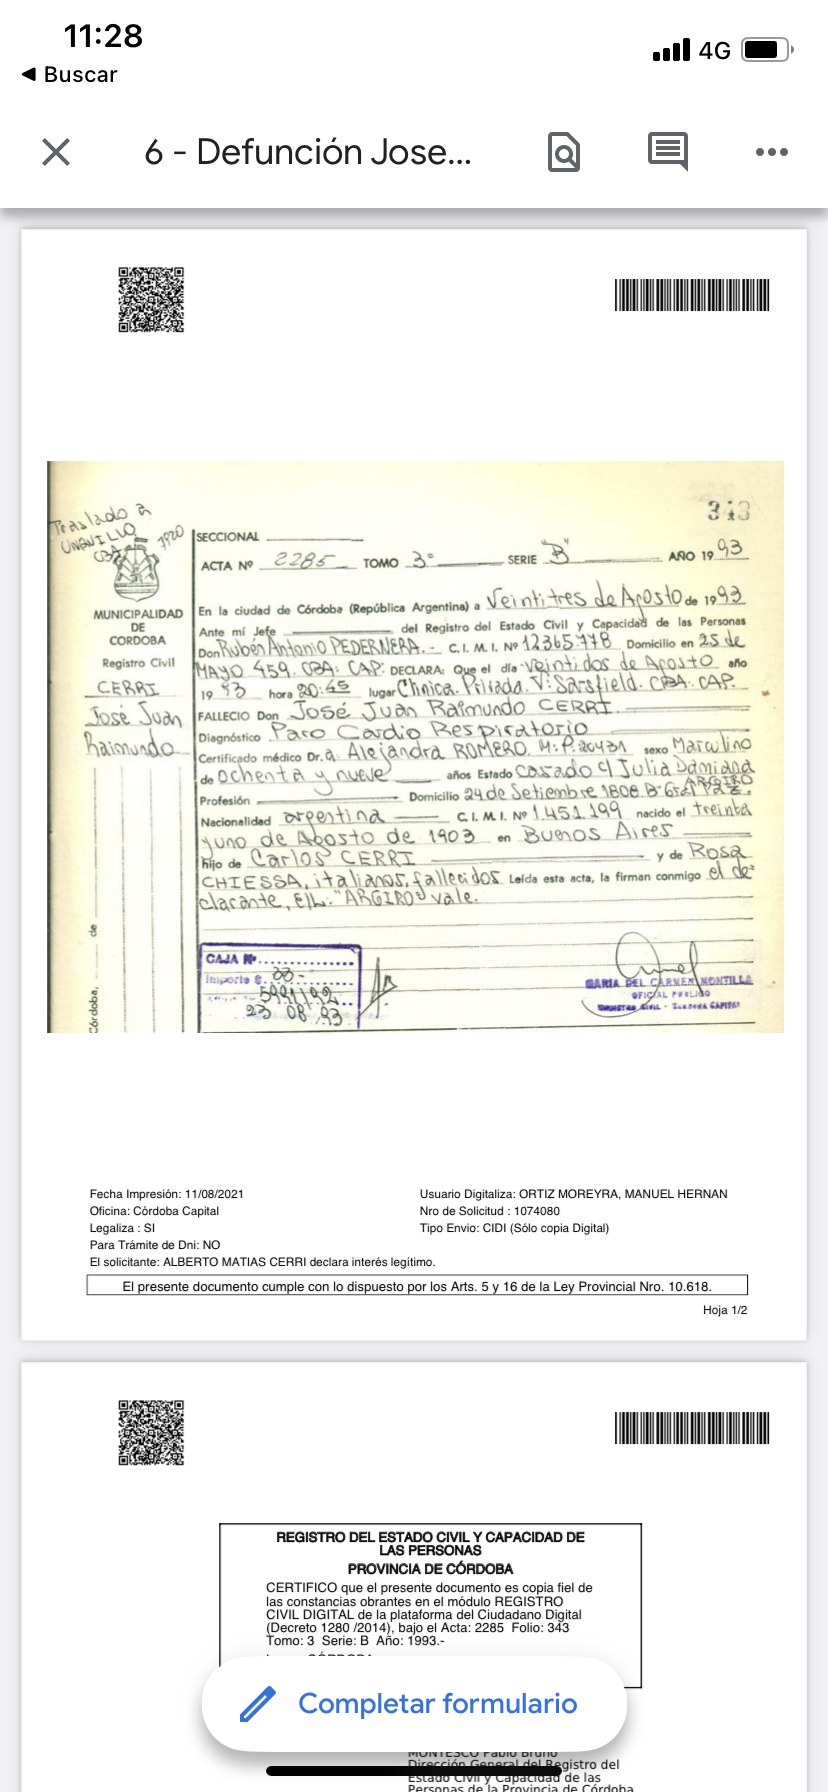 11:28
4G
Buscar
6 - Defunción Jose...
313
Traslado a
UNQUILLO
CBA 1920
SECCIONAL
ACTA Nº 2285 TOMO 3º SERIE "B" AÑO 1993
MUNICIPALIDAD
DE
CORDOBA
Registro Civil
CERRI
José Juan
Raimundo
Córdoba, de
En la ciudad de Córdoba (República Argentina) a Veintitres de Agosto de 1993
Ante mí Jefe del Registro del Estado Civil y Capacidad de las Personas
Don Rubén Antonio PEDERNERA.- C. I. M. I. Nº 12365778 Domicilio en 25 de
MAYO 459. CBA: CAP: DECLARA: Que el día Veintidos de Agosto año
1993 hora 20:45 lugar Clinica. Privada. V: Sarsfield. CBA: CAP.
FALLECIO Don José Juan Raimundo CERRI
Diagnóstico Paro Cardio Respiratorio
Certificado médico Dr. a. Alejandra ROMERO. M:P. 20431 sexo Masculino
de ochenta y nueve años Estado Casado c/ Julia Damiana
ARGIRO
Profesión Domicilio 24 de Setiembre 1808 Bº Gral Paz.
Nacionalidad argentina C. I. M. I. Nº 1.451.199 nacido el treinta
y uno de Agosto de 1903 en Buenos Aires
hijo de Carlos CERRI y de Rosa
CHIESSA, italianos, fallecidos Leída esta acta, la firman conmigo el de-
clarante, E/L: "ARGIRO" vale.
CAJA Nº
Importe $. 20-
23 08 93
MARIA DEL CARMEN MONTILLA
OFICIAL PUBLICO
Fecha Impresión: 11/08/2021
Oficina: Córdoba Capital
Legaliza : SI
Para Trámite de Dni: NO
Usuario Digitaliza: ORTIZ MOREYRA, MANUEL HERNAN
Nro de Solicitud : 1074080
Tipo Envio: CIDI (Sólo copia Digital)
El solicitante: ALBERTO MATIAS CERRI declara interés legítimo.
El presente documento cumple con lo dispuesto por los Arts. 5 y 16 de la Ley Provincial Nro. 10.618.
Hoja 1/2
REGISTRO DEL ESTADO CIVIL Y CAPACIDAD DE
LAS PERSONAS
PROVINCIA DE CÓRDOBA
CERTIFICO que el presente documento es copia fiel de
las constancias obrantes en el módulo REGISTRO
CIVIL DIGITAL de la plataforma del Ciudadano Digital
(Decreto 1280 /2014), bajo el Acta: 2285 Folio: 343
Tomo: 3 Serie: B Año: 1993.-
Completar formulario
MONTESCO Pablo Bruno
Dirección General del Registro del
Estado Civil y Capacidad de las
Personas de la Provincia de Córdoba